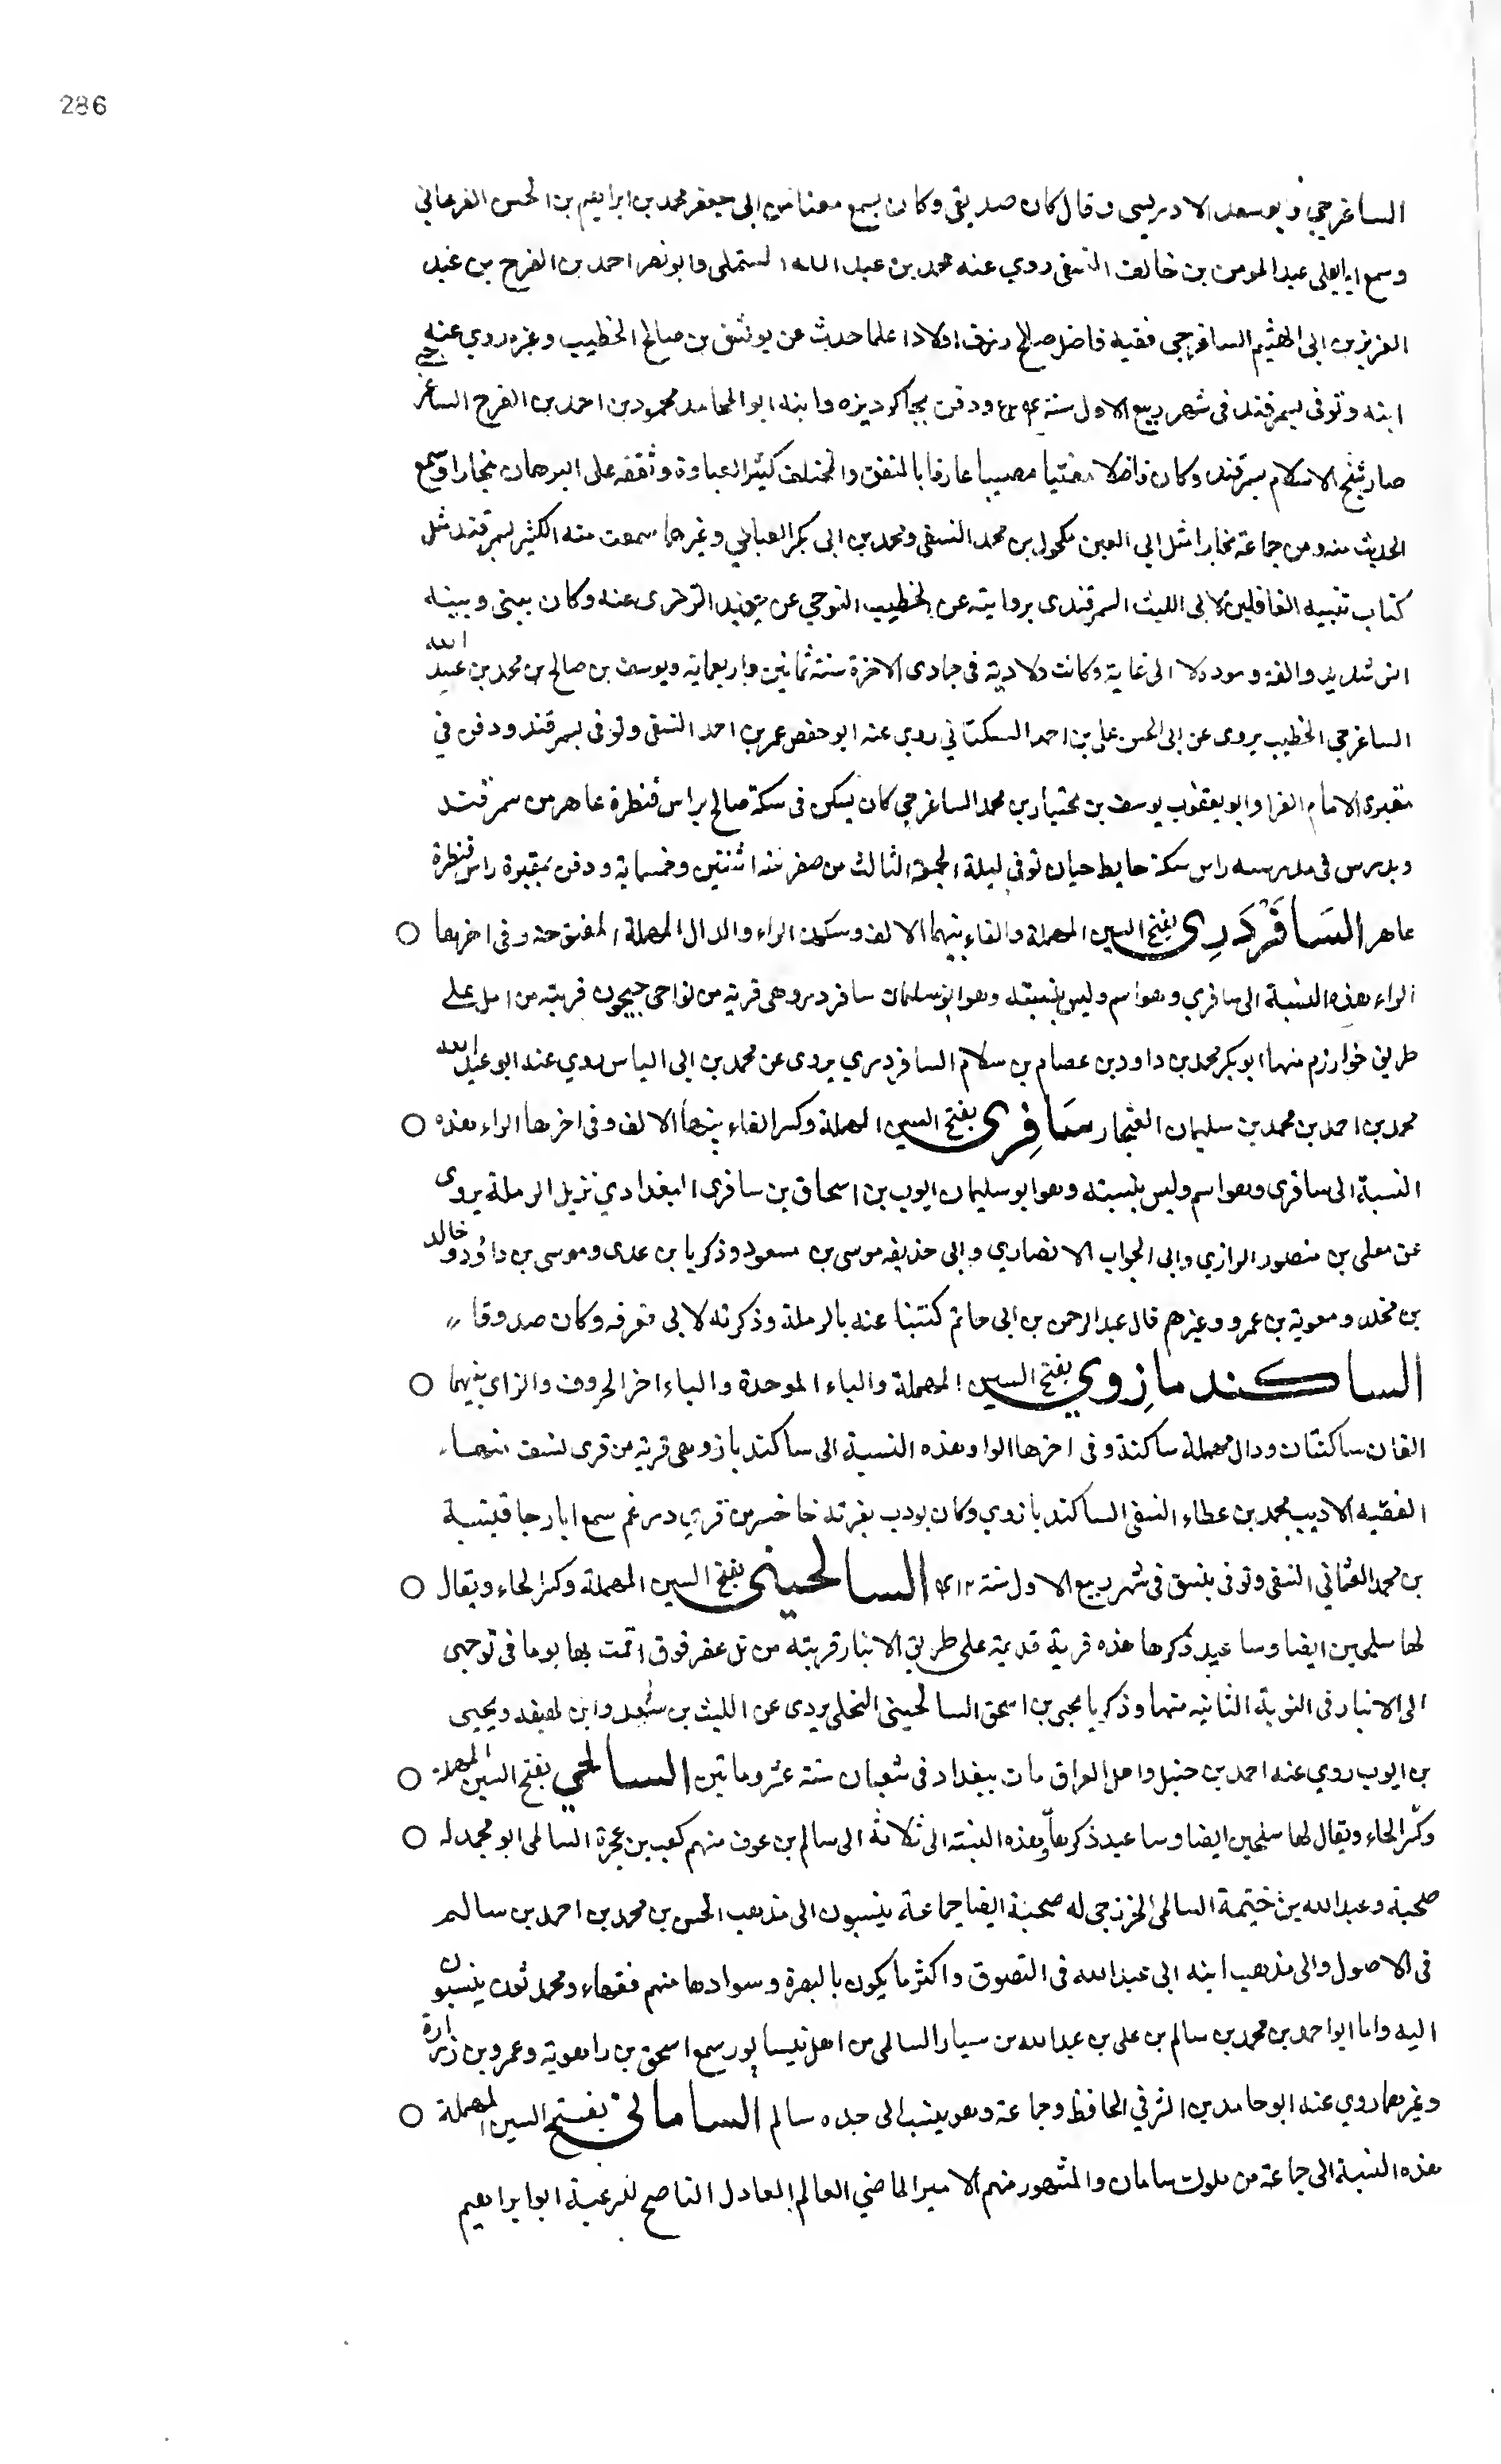 286
الساغرجي وابو سعد الادريسي وقال كان صديقي وكان يسمع معنا من ابي جعفر محمد بن ابراهيم بن الحسن الفرغاني
وسمع ابا يعلي عبد المومن بن خالف النسفي روي عنه محمد بن عبد الله المستملي وابو نصر احمد بن الفرح بن عبد
العزيز بن ابي الهيثم الساغرجي فقيه فاضل صالح رزق اولادا علما حدث عن يوسف بن صالح الخطيب وغيره روي عنه
ابنه وتوفي بسمرقند في شهر ربيع الاول سنة ودفن بجاكرديزه وابنه ابو المحامد محمود بن احمد بن الفرج الساغرجي
صار شيخ الاسلام بسمرقند وكان فاضلا مفتيا مصيبا عارفا بالمتفق والمختلف كثير العبادة وتفقه علي البرهان ببخارا وسمع
الحديث منه ومن جماعة بخارا مثل ابي المعين مكحول بن محمد النسفي ومحمد بن ابي بكر العباني وغيرهما سمعت منه الكثير بسمرقند مثل
كتاب تنبيه الغافلين لابي الليث السمرقندي بروايته عن الخطيب النوحي عن الترمذي عنه وكان بيني وبينه
انس شديد والفة ومودة لا الى غاية وكانت ولادته في جمادى الاخرة سنة ثمانين واربعماية ويوسف بن صالح بن محمد بن عبيد الله
الساغرجي الخطيب يروى عن ابي الحسن علي بن احمد السكتاني روي عنه ابو حفص عمر بن احمد النسفي وتوفي بسمرقند ودفن في
مقبرة الامام الغزا وابو يعقوب يوسف بن بختيار بن محمد الساغرجي كان يسكن في سكة صالح براس قنطرة عاهر من سمرقند
ويدرس في مدرسه راس سكة حايط حيان توفي ليلة الجمعة الثالث من صفر سنة اثنتين وخمساية ودفن بمقبرة راس قنطرة
عاهر السَافَرْدَرِي بفتح السين المهملة والفاء بينهما الالف وسكون الراء والدال المهملة المفتوحة وفي اخرها ○
الراء هذه النسبة الى سافري وهو اسم وليس بنسبته وهو ابو سليمان سافردر وهي قرية من نواحي جيحون قريبه من امل علي
طريق خوارزم منها ابو بكر محمد بن داود بن عصام بن سلام السافردري يروى عن محمد بن ابي الياس روي عنه ابو عبد الله
محمد بن احمد بن محمد بن سليمان الغنجار سَافِري بفتح السين المهملة وكسر الفاء بينهما الالف وفي اخرها الراء هذه ○
النسبة الى سافري وهو اسم وليس بنسبته وهو ابو سليمان ايوب بن اسحاق بن سافري البغدادي نزيل الرملة يروى
عن معلي بن منصور الرازي وابي الجواب الانصاري وابي حذيفه موسى بن مسعود وذكريا بن عدى وموسى بن داوُد وخالد
بن مخلد ومعوية بن عمرو وغيرهم قال عبد الرحمن بن ابي حاتم كتبنا عنه بالرملة وذكرته لابي فعرفه وكان صدوقا
الساكند مازوي بفتح السين المهملة والباء الموحدة والياء اخر الحروف والزاي بينهما ○
الفان ساكنتان ودال مهملة ساكنة وفي اخرها الواو هذه النسبة الى ساكند بازو هي قرية من قرى نسف منها
الفقيه الاديب محمد بن عطاء النسفي الساكند بازوي وكان يودب بقرية خاخسر من قري درغم سمع ابا رجا قتيبة
بن محمد العثماني النسفي وتوفي بنسف في شهر ربيع الاول سنة السالحيني بفتح السين المهملة وكسر الحاء ويقال ○
لها سليحين ايضا وساعيد ذكرها هذه قرية قديمة على طريق الانبار قريبة من تل عقرقوف اقمت بها يوما في توجهي
الى الانبار في النوبة الثانيه منها وذكريا يحيى بن اسحق السالحيني النخلي يروى عن الليث بن سعد وابن لهيعه ويحيى
بن ايوب روي عنه احمد بن حنبل واهل العراق مات ببغداد في شعبان سنة عشر وماتين السالحي بفتح السين المهملة ○
وكسر الحاء ويقال لها سلحين ايضا وساعيد ذكرها وهذه النسبة الى ثلاثة الى سالم بن عوف منهم كعب بن عجرة السالمي ابو محمد له ○
صحبة وعبد الله بن خيثمة السالمي الخزرجي له صحبة ايضا جماعة ينسبون الى مذهب الحسن بن محمد بن احمد بن سالم
في الاصول والى مذهب ابنه ابي عبد الله في التصوف واكثر ما يكون بالبصرة وسوادها منهم فقهاء ومحدثون ينسبون
اليه واما ابو احمد بن محمد بن سالم بن علي بن عبد الله بن سيار السالمي من اهل نيسابور سمع اسحق بن راهوية وعمرو بن زرارة
وغيرهما روي عنه ابو حامد بن الشرقي الحافظ وجماعة وهو ينسب الى جده سالم الساماني بفتح السين المهملة ○
هذه النسبة الى جماعة من ملوك سامان والمشهور منهم الامير الماضي العالم العادل الناصح للرعية ابو ابراهيم